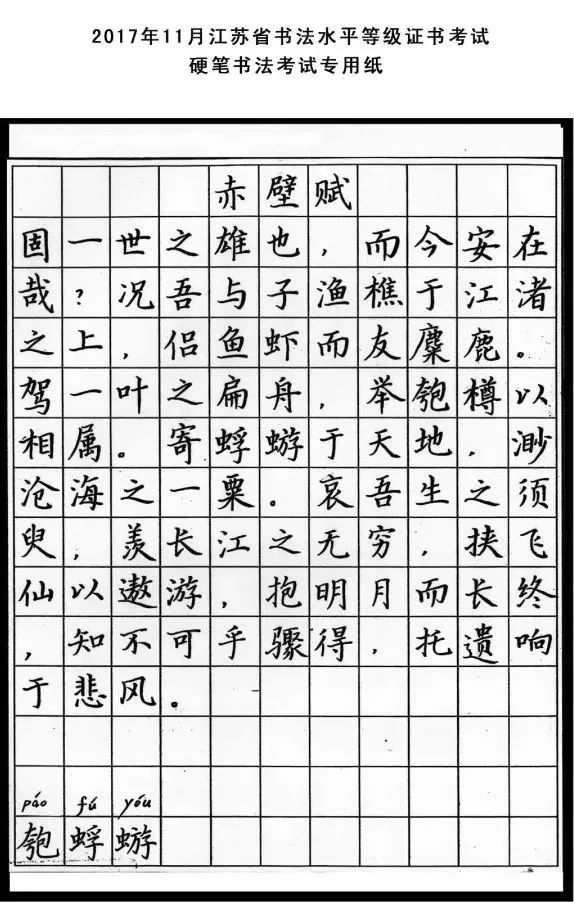 2017年11月江苏省书法水平等级证书考试
硬笔书法考试专用纸
赤壁赋
固一世之雄也,而今安在
哉?况吾与子渔樵于江渚
之上,侣鱼虾而友麋鹿。
驾一叶之扁舟,举匏樽以
相属。寄蜉蝣于天地,渺
沧海之一粟。哀吾生之须
臾,羡长江之无穷,挟飞
仙以遨游,抱明月而长终
,知不可乎骤得,托遗响
于悲风。
páo fú yóu
匏蜉蝣